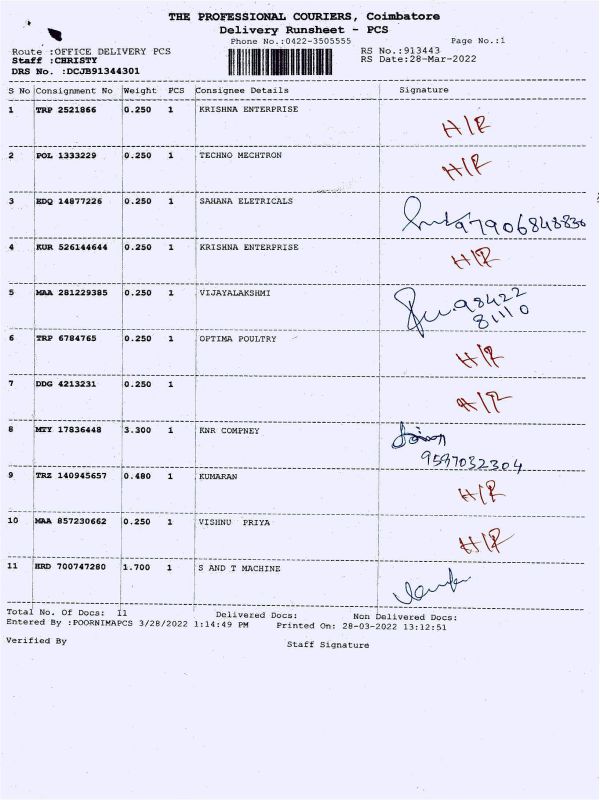 THE PROFESSIONAL COURIERS, Coimbatore
Delivery Runsheet - PCS
Phone No.:0422-3505555 Page No.:1
Route :OFFICE DELIVERY PCS RS No.:913443
Staff :CHRISTY RS Date:28-Mar-2022
DRS No. :DCJB91344301
S No Consignment No Weight PCS Consignee Details Signature
1 TRP 2521866 0.250 1 KRISHNA ENTERPRISE H/R
2 POL 1333229 0.250 1 TECHNO MECHTRON H/R
3 EDQ 14877226 0.250 1 SAHANA ELETRICALS 7906848830
4 KUR 526144644 0.250 1 KRISHNA ENTERPRISE H/R
5 MAA 281229385 0.250 1 VIJAYALAKSHMI 98422
81110
6 TRP 6784765 0.250 1 OPTIMA POULTRY H/R
7 DDG 4213231 0.250 1 H/R
8 MTY 17836448 3.300 1 KNR COMPNEY
9597032304
9 TRZ 140945657 0.480 1 KUMARAN H/R
10 MAA 857230662 0.250 1 VISHNU PRIYA H/R
11 HRD 700747280 1.700 1 S AND T MACHINE
Total No. Of Docs: 11 Delivered Docs: Non Delivered Docs:
Entered By :POORNIMAPCS 3/28/2022 1:14:49 PM Printed On: 28-03-2022 13:12:51
Verified By Staff Signature